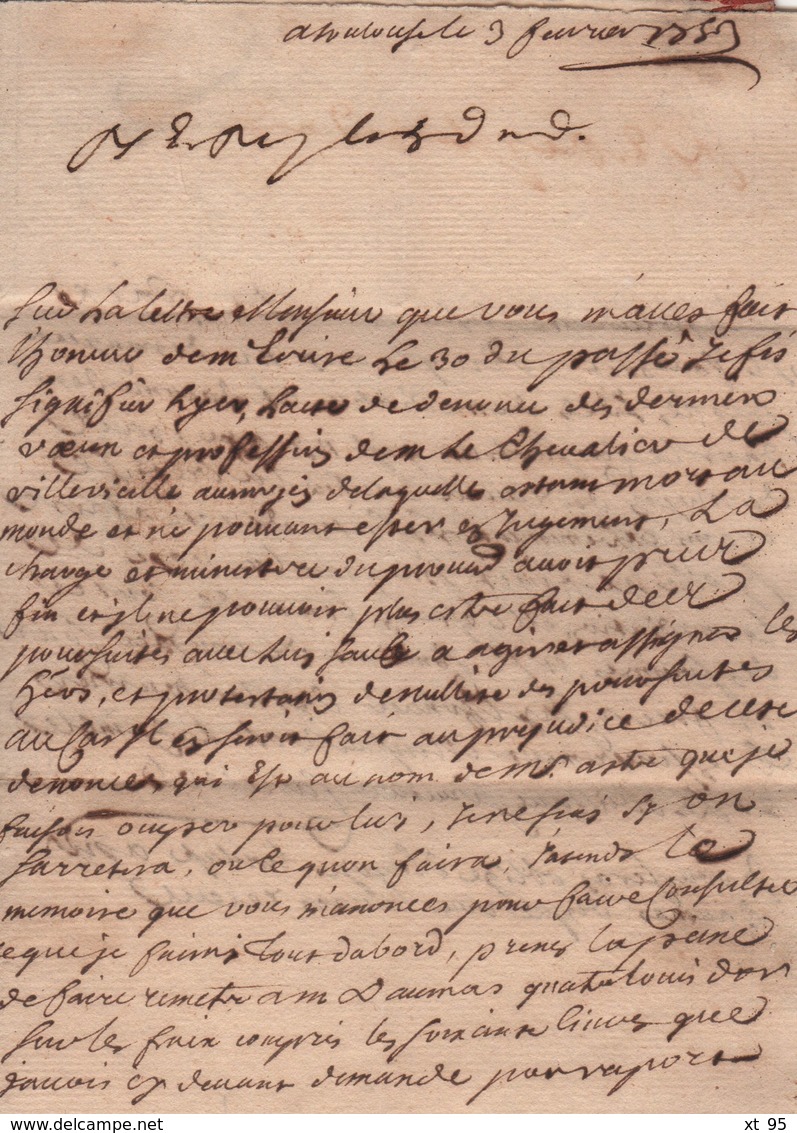 a toulouse le 3 fevrier 1753
Sur la lettre Monsieur que vous m'aves fait
lhoneur de m'Ecrire Le 30 du passé Je fis
signifier hyer, lacte de denonce des derniers
vœux et profession de m Le Chevalier de
villevieille au moyen de laquelle estant mort au
monde et ne pouvant ester en Jugement, La
charge et ministere du procureur avoit pris
fin et Il ne pouvoit plus estre fait de
poursuites avec lui sauf a agir et assigner les
hers, et protestation de nullité des poursuites
au cas Il en seroit fait au prejudice de cete
denonce qui Est au nom de mr astre que je
faisois ocuper pour lui, Je ne scai sy on
sarretera, ou ce quon faira, J'atends Le
memoire que vous m'anonces pour faire Consulter
ce que je fairai tout dabord, prenes la peine
de faire remetre a m Daumas quatre louis dor
sur les fraix compris les soixante livres que
javois cy devant demandé par raport
xt 95